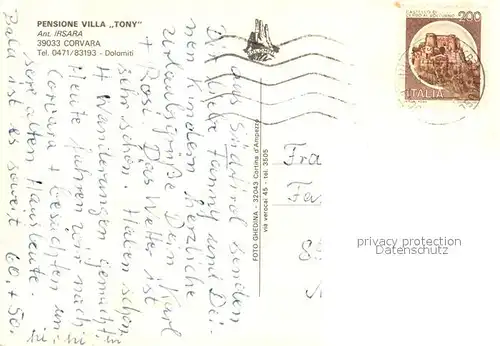 PENSIONE VILLA „TONY"
Ant. IRSARA
39033 CORVARA
Tel. 0471/83193 - Dolomiti
Aus Südtirol senden
Dir liebe Fanny und Dei-
nen Kindern herzliche
Urlaubsgrüße Dein Karl
+ Rosi. Das Wetter ist
sehr schön. Haben schon
4 Wanderungen gemacht.
Heute fahren wir nach
Corvara + besuchten un-
sere alten Hausleute.
Bald ist es soweit 60, + 50.
FOTO GHEDINA - 32043 Cortina d'Ampezzo
via verocai 45 - tel. 3505
200
ITALIA
Fra
Fa
privacy protection
Datenschutz